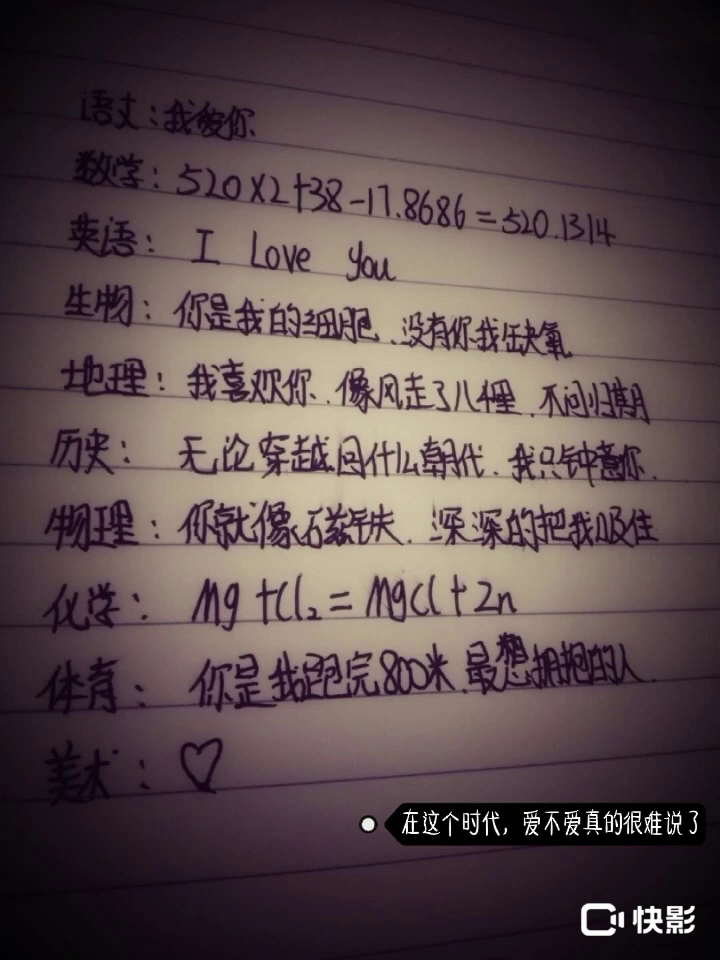 语文：我爱你
数学：520×2+38-17.8686=520.1314
英语：I Love You
生物：你是我的细胞、没有你我缺氧
地理：我喜欢你、像风走了八千里、不问归期
历史：无论穿越回什么朝代、我只钟意你、
物理：你就像石磁铁、深深的把我吸住
化学：Mg+Cl₂=MgCl+Zn
体育：你是我跑完800米、最想拥抱的人、
美术：♡
在这个时代，爱不爱真的很难说了
快影